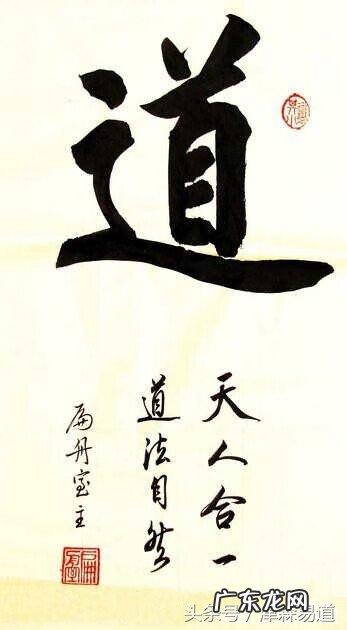 道
天人合一
道法自然
扁舟室主
广东龙网
头条号 / 易道